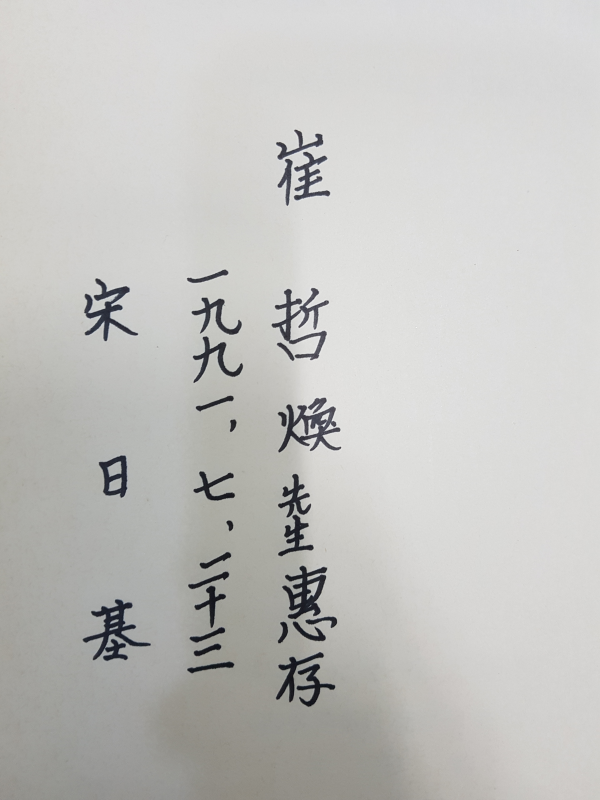 崔哲煥先生惠存
一九九一，七，二十三
宋日基